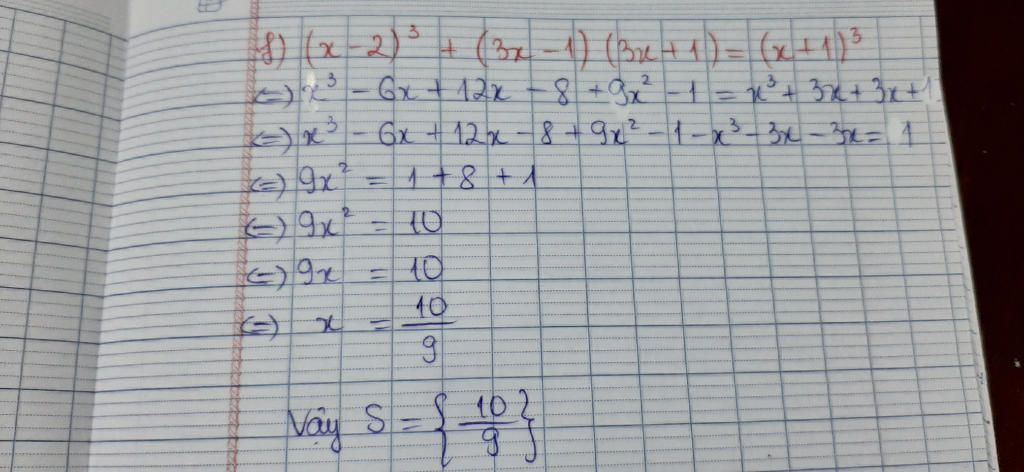 f) (x-2)³ + (3x-1)(3x+1) = (x+1)³
<=> x³ - 6x + 12x - 8 + 9x² - 1 = x³ + 3x + 3x + 1
<=> x³ - 6x + 12x - 8 + 9x² - 1 - x³ - 3x - 3x = 1
<=> 9x² = 1 + 8 + 1
<=> 9x² = 10
<=> 9x = 10
<=> x = 10/9
Vậy S = {10/9}